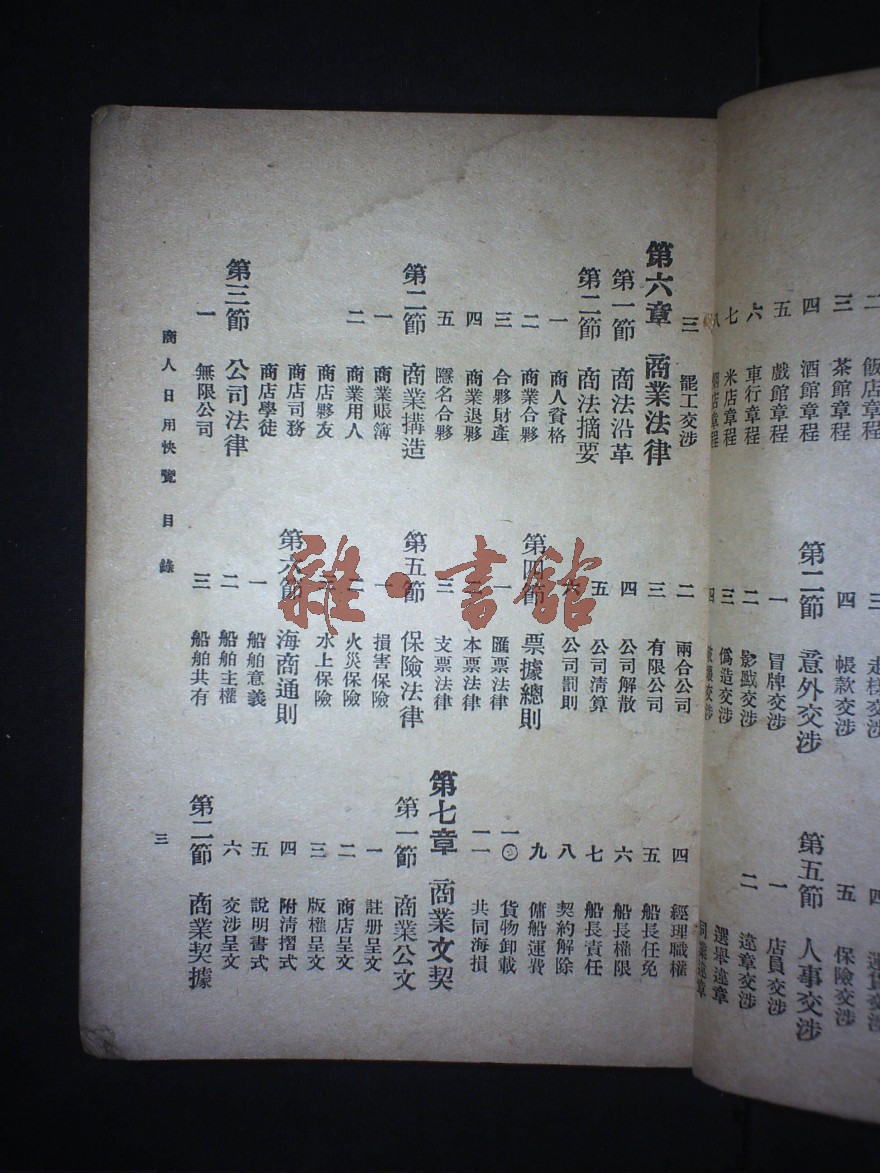 二 飯店章程
三 茶館章程
四 酒館章程
五 戲館章程
六 車行章程
七 米店章程
八 店章程
三 交涉
四 帳款交涉
第二節 意外交涉
一 冒牌交涉
二 影戤交涉
三 僞造交涉
四 交涉
四 運貨交涉
五 保險交涉
第五節 人事交涉
一 店員交涉
二 違章交涉
選舉違章
同業違章
三 罷工交涉
第六章 商業法律
第一節 商法沿革
第二節 商法摘要
一 商人資格
二 商業合夥
三 合夥財產
四 商業退夥
五 隱名合夥
第二節 商業搆造
一 商業賬簿
二 商業用人
商店夥友
商店司務
商店學徒
第三節 公司法律
一 無限公司
二 兩合公司
三 有限公司
四 公司解散
五 公司清算
六 公司罰則
第四節 票據總則
一 匯票法律
二 本票法律
三 支票法律
第五節 保險法律
一 損害保險
二 火災保險
三 水上保險
第六節 海商通則
一 船舶意義
二 船舶主權
三 船舶共有
四 經理職權
五 船長任免
六 船長權限
七 船長責任
八 契約解除
九 傭船運費
一〇 貨物卸載
一一 共同海損
第七章 商業文契
第一節 商業公文
一 註册呈文
二 商店呈文
三 版權呈文
四 附清摺式
五 說明書式
六 交涉呈文
第二節 商業契據
商人日用快覽 目錄
三
雜·書館